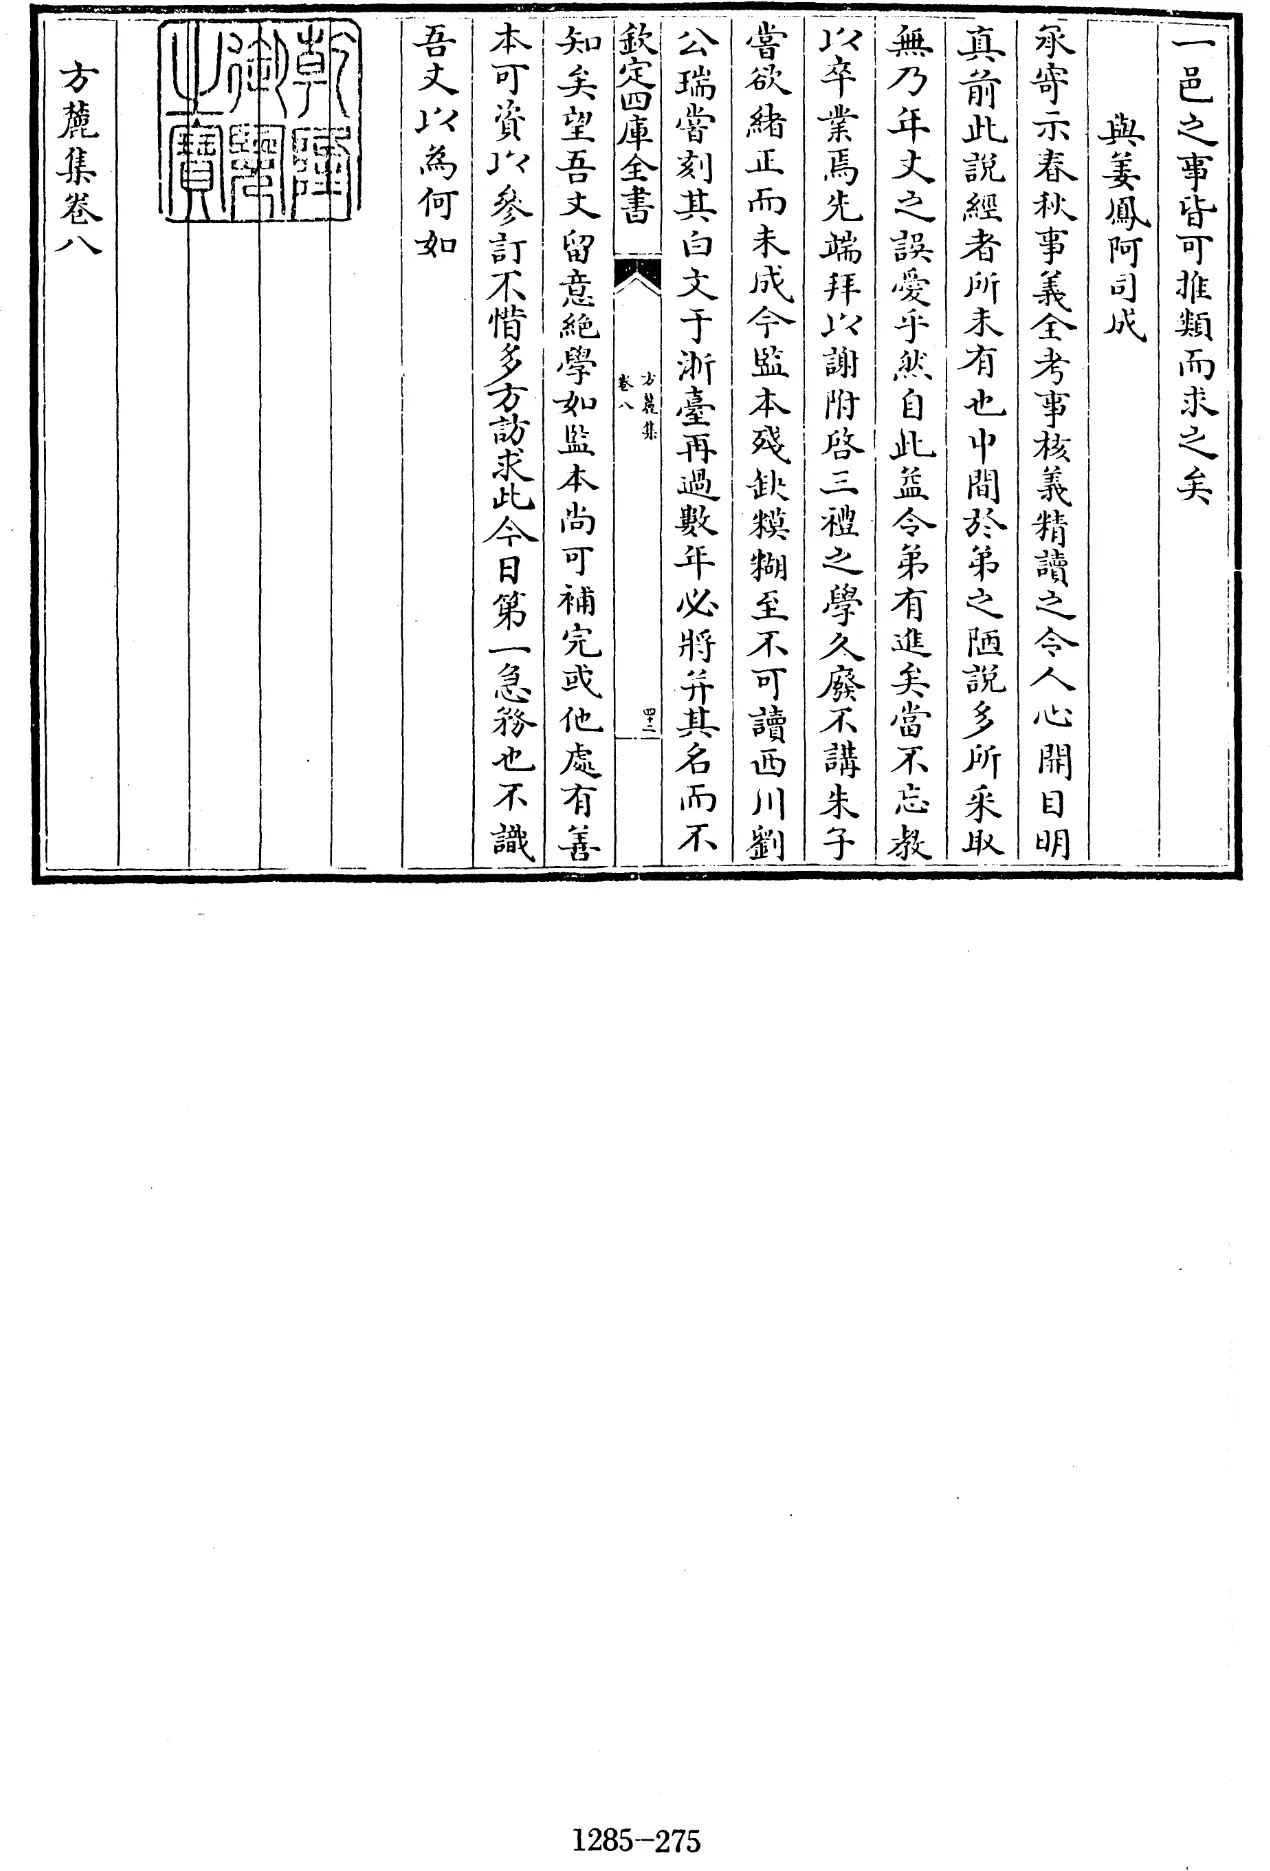 一邑之事皆可推類而求之矣
與姜鳳阿司成
承寄示春秋事義全考事核義精讀之令人心開目明
真前此說經者所未有也中間於弟之陋說多所采取
無乃年丈之誤愛乎然自此益令弟有進矣當不忘教
以卒業焉先端拜以謝附啓三禮之學久廢不講朱子
嘗欲緒正而未成今監本殘缺糢糊至不可讀西川劉
公瑞嘗刻其白文于浙臺再過數年必將并其名而不
欽定四庫全書
方麓集
卷八
四十二
知矣望吾丈留意絶學如監本尚可補完或他處有善
本可資以參訂不惜多方訪求此今日第一急務也不識
吾丈以為何如
乾隆
御覽
之寶
方麓集卷八
1285-275